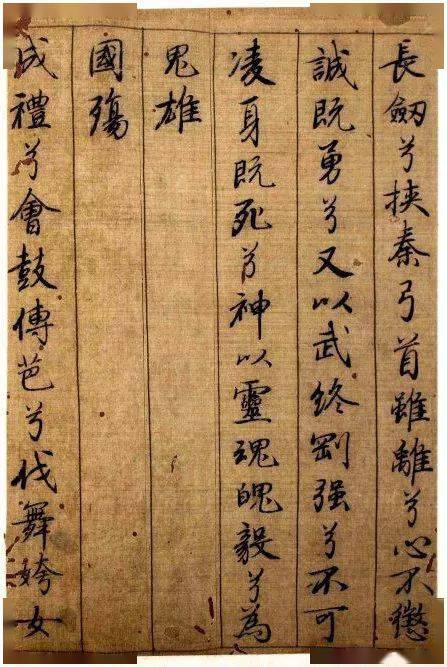 長劒兮挾秦弓首雖離兮心不懲
誠既勇兮又以武終剛强兮不可
凌身既死兮神以靈魂魄毅兮為
鬼雄
國殤
成禮兮會鼓傳芭兮代舞姱女